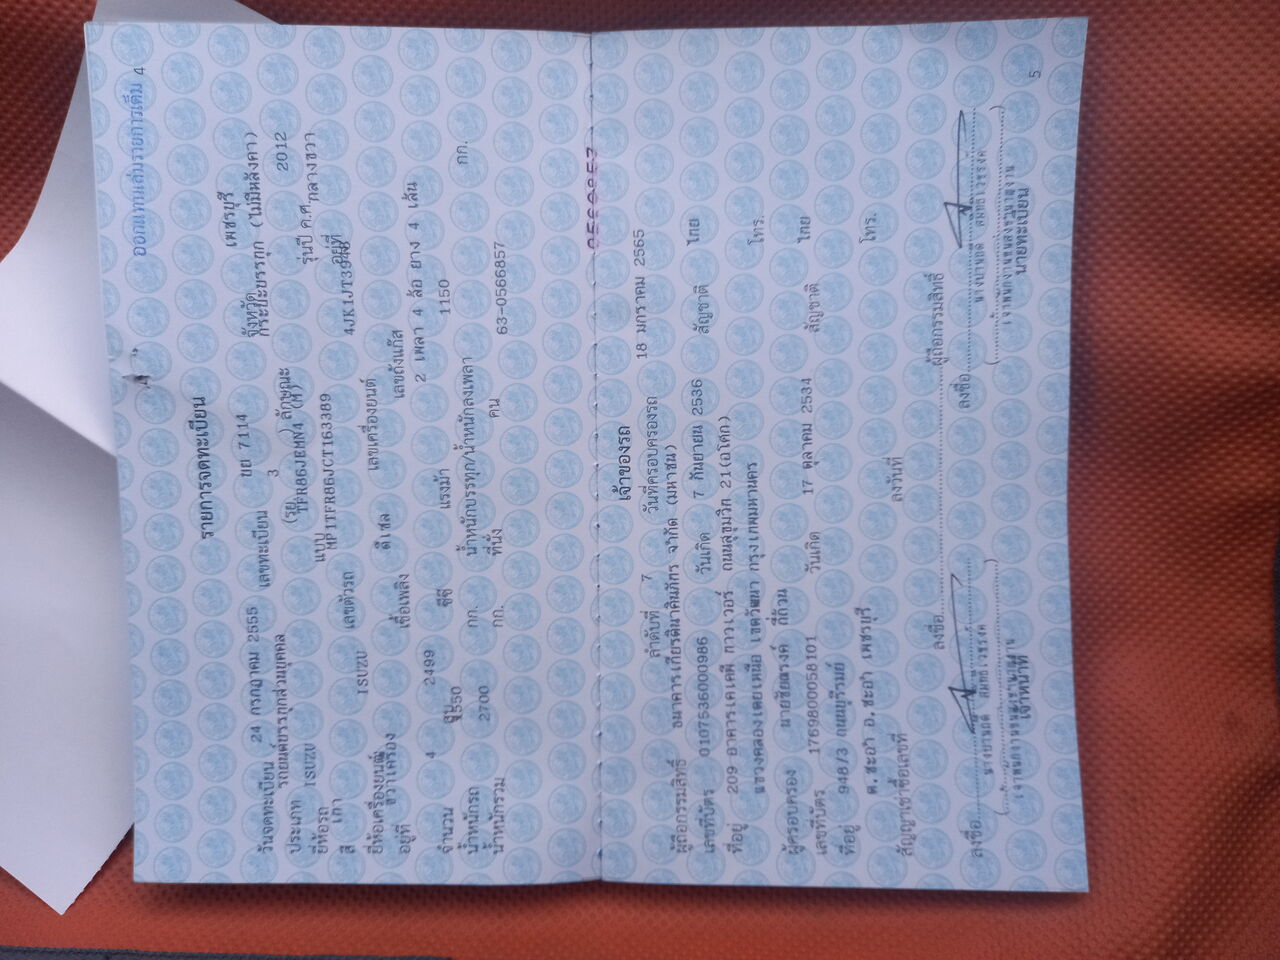 ออกแทนเล่มรายการเดิม 4
รายการจดทะเบียน
วันจดทะเบียน 24 กรกฎาคม 2555 เลขทะเบียน ขย 7114 จังหวัด เพชรบุรี
ประเภท รถยนต์บรรทุกส่วนบุคคล (รย. 3 ) ลักษณะ กระบะบรรทุก (ไม่มีหลังคา)
ยี่ห้อรถ ISUZU แบบ TFR86JEMN4 (M) รุ่นปี ค.ศ. 2012
สี เทา เลขตัวรถ MP1TFR86JCT163389 อยู่ที่ กลางขวา
ยี่ห้อเครื่องยนต์ ISUZU เลขเครื่องยนต์ 4JK1JT3948
อยู่ที่ ขวาเครื่อง เชื้อเพลิง ดีเซล เลขถังแก๊ส
จำนวน 4 สูบ 2499 ซีซี แรงม้า 2 เพลา 4 ล้อ ยาง 4 เส้น
น้ำหนักรถ 1550 กก. น้ำหนักบรรทุก/น้ำหนักลงเพลา 1150 กก.
น้ำหนักรวม 2700 กก. ที่นั่ง คน 63-0566857
เจ้าของรถ
ลำดับที่ 7 วันที่ครอบครองรถ 18 มกราคม 2565
ผู้ถือกรรมสิทธิ์ ธนาคารเกียรตินาคินภัทร จำกัด (มหาชน)
เลขที่บัตร 0107536000986 วันเกิด 7 กันยายน 2536 สัญชาติ ไทย
ที่อยู่ 209 อาคารเคเคพี ทาวเวอร์ ถนนสุขุมวิท 21(อโศก)
แขวงคลองเตยเหนือ เขตวัฒนา กรุงเทพมหานคร โทร.
ผู้ครอบครอง นายชัยณรงค์ กี่ถ้วน
เลขที่บัตร 1769800058101 วันเกิด 17 ตุลาคม 2534 สัญชาติ ไทย
ที่อยู่ 948/3 ถนนบุรีรมย์
ต.ชะอำ อ.ชะอำ เพชรบุรี โทร.
สัญญาเช่าซื้อเลขที่ ลงวันที่
ลงชื่อ ผู้ถือกรรมสิทธิ์
ลงชื่อ ลงชื่อ
เจ้าหน้าที่ นายทะเบียน
5